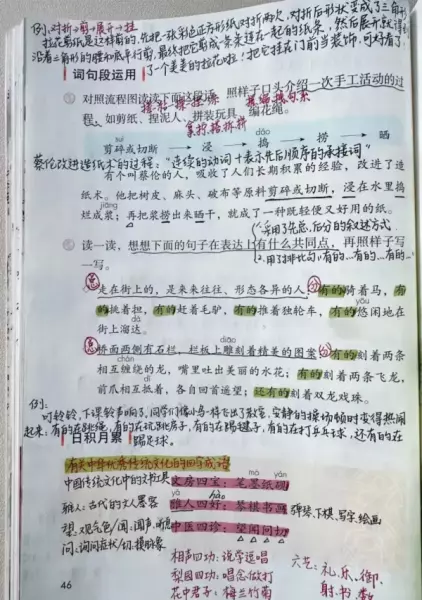 例:对折→剪→展开→挂
拉花剪纸是这样剪的,先把一张彩色正方形纸对折两次,对折后形状变成了三角形
沿着三角形的腰和底平行剪,最终把它剪成一条条连在一起的纸条,然后展开就得
词句段运用 了一个美美的拉花啦!把它挂在门前当装饰,可好看了
对照流程图读读下面这段话,照样子口头介绍一次手工活动的过
程,如剪纸、捏泥人、拼装玩具、编花绳。
dǎo
剪碎或切断 → 浸 → 捣 → 捞 → 晒
蔡伦改进造纸术的过程:“连续的动词”+表示先后顺序的承接词”
有个叫蔡伦的人,吸收了人们长期积累的经验,改进了造
纸术。他把树皮、麻头、破布等原料剪碎或切断,浸在水里捣
jiāng
烂成浆;再把浆捞出来晒干,就成了一种既轻便又好用的纸。
1.采用了先总后分的叙述方式
读一读,想想下面的句子在表达上有什么共同点,再照样子写
一写。
2.用了排比句:有的…有的…有的…
总 走在街上的,是来来往往、形态各异的人:分 有的骑着马,有
的挑着担,有的赶着毛驴,有的推着独轮车,有的悠闲地在
yōu
街上溜达。
diāo
总 桥面两侧有石栏,栏板上雕刻着精美的图案:分 有的刻着两条
chán
相互缠绕的龙,嘴里吐出美丽的水花;有的刻着两条飞龙,
前爪相互抵着,各自回首遥望;还有的刻着双龙戏珠。
例:
叮铃铃,下课铃声响了,同学们像小马一样奔出了教室,安静的操场顿时变得热闹
起来,有的在跳绳,有的在玩跳房子,有的在踢毽子,有的在打乒乓球,还有的在
日积月累 踢足球。
有关中华优秀传统文化的四字成语
mò yàn
中国传统文化中的文书工具 文房四宝:笔墨纸砚
yǎ qí
雅人:古代的文人墨客 雅人四好:琴棋书画 弹琴、下棋、写字、绘画
望:观气色/闻:闻声息 中医四诊:望闻问切
问:询问症状/切:摸脉象
相声四功:说学逗唱
梨园四功:唱念做打
花中君子:梅兰竹菊
六艺:礼、乐、御、
射、书、数
46